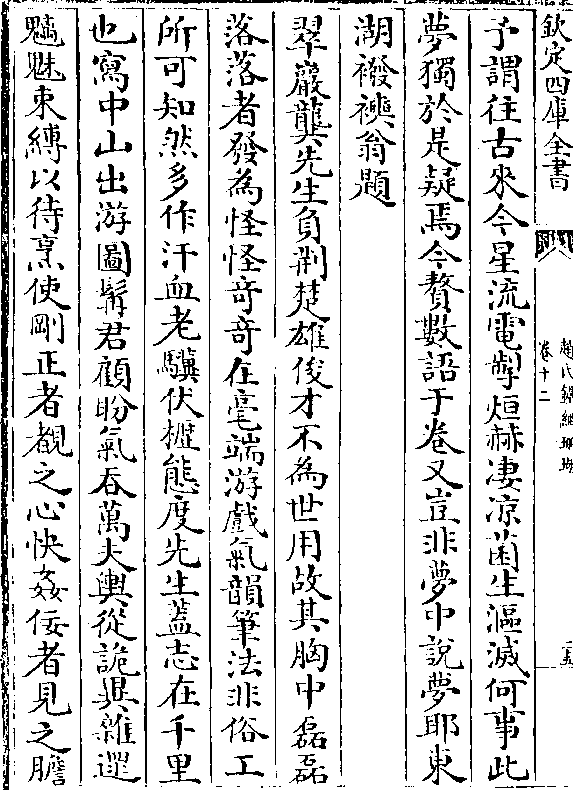 欽定四庫全書
趙氏鐵網珊瑚
卷十二
予謂往古來今星流電掣烜赫凄凉菌生漚滅何事此
夢獨於是疑焉今贅數語于卷又豈非夢中說夢耶東
湖襏襫翁題
翠巖龔先生負荆楚雄俊才不為世用故其胸中磊磊
落落者發為怪怪竒竒在毫端游戲氣韻筆法非俗工
所可知然多作汗血老驥伏櫪態度先生蓋志在千里
也寫中山出游圖髯君顧盻氣吞萬夫輿從詭異雜遝
魑魅束縛以待烹使剛正者覩之心快姦佞者見之膽